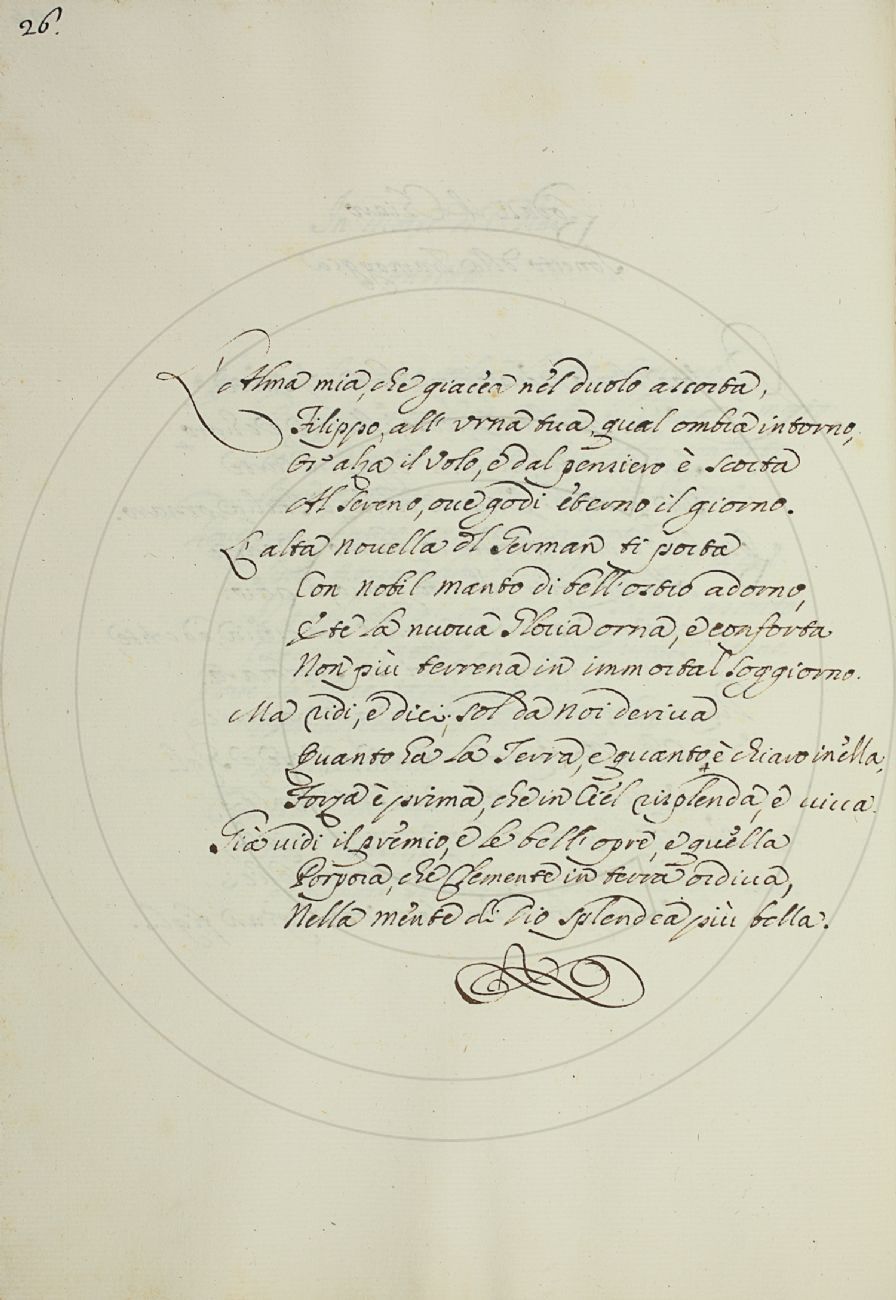 26.
L'Alma mia, che giacea nel duolo assorta,
Filippo, all'urna tua, qual ombra intorno,
Or alza il volo, e dal pensiero è scorta
Al sereno, ove godi eterno il giorno.
L'alta novella del German ti porta
Con nobil manto di bell'ostro adorno,
E te la nuova Gloria orna, e conforta
Non più terrena in immortal soggiorno.
Ma ridi, e dici, sol da noi deriva
Quanto ha la Terra, e quanto è chiaro in ella,
Forza è prima, che in Ciel risplenda, e viva.
Già vidi il premio, e le bell'opre, e quella
Porpora, che Clemente in terra ordiva,
Nella mente di Dio splendea più bella.